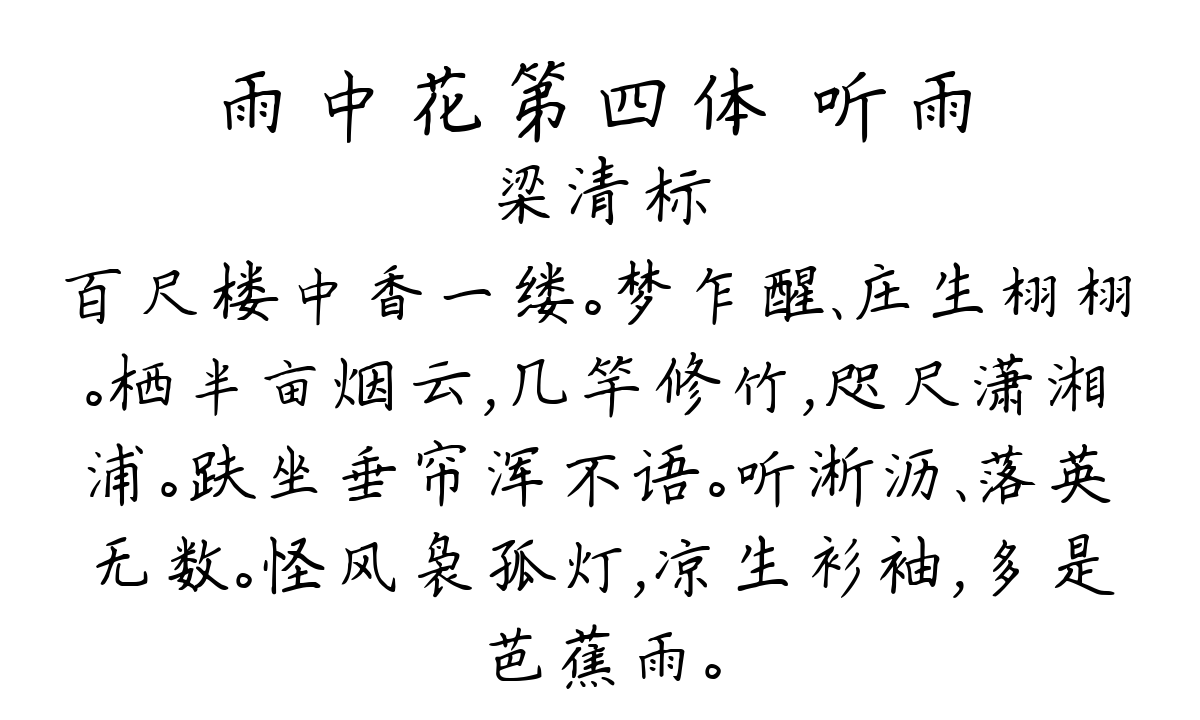 雨中花第四体 听雨
梁清标
百尺楼中香一缕。梦乍醒、庄生栩栩
。栖半亩烟云,几竿修竹,咫尺潇湘
浦。趺坐垂帘浑不语。听淅沥、落英
无数。怪风袅孤灯,凉生衫袖,多是
芭蕉雨。